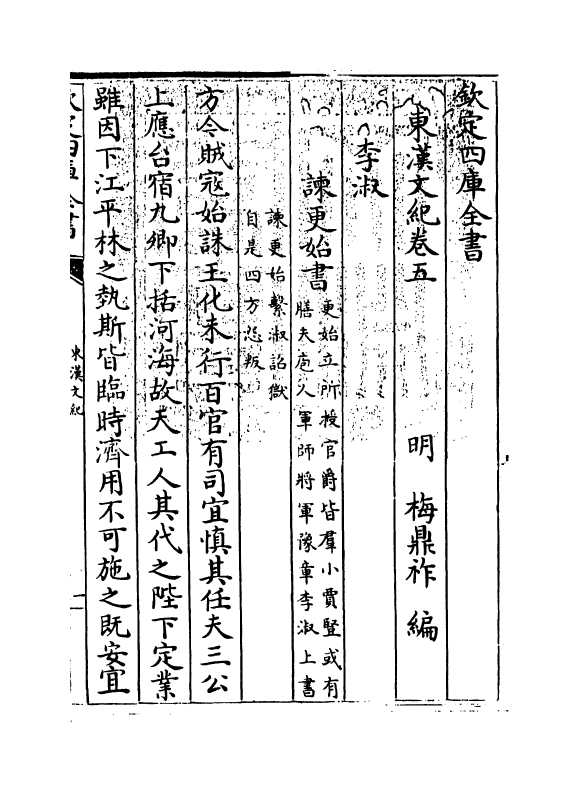 欽定四庫全書
東漢文紀卷五
明 梅鼎祚 編
李淑
諫更始書
更始立所授官爵皆羣小賈豎或有
膳夫庖人軍師將軍豫章李淑上書
諫更始繫淑詔獄
自是四方怨叛
方今賊寇始誅王化未行百官有司宜慎其任夫三公
上應台宿九卿下括河海故夫工人其代之陛下定業
雖因下江平林之埶斯皆臨時濟用不可施之既安宜
欽定四庫全書
東漢文紀
一